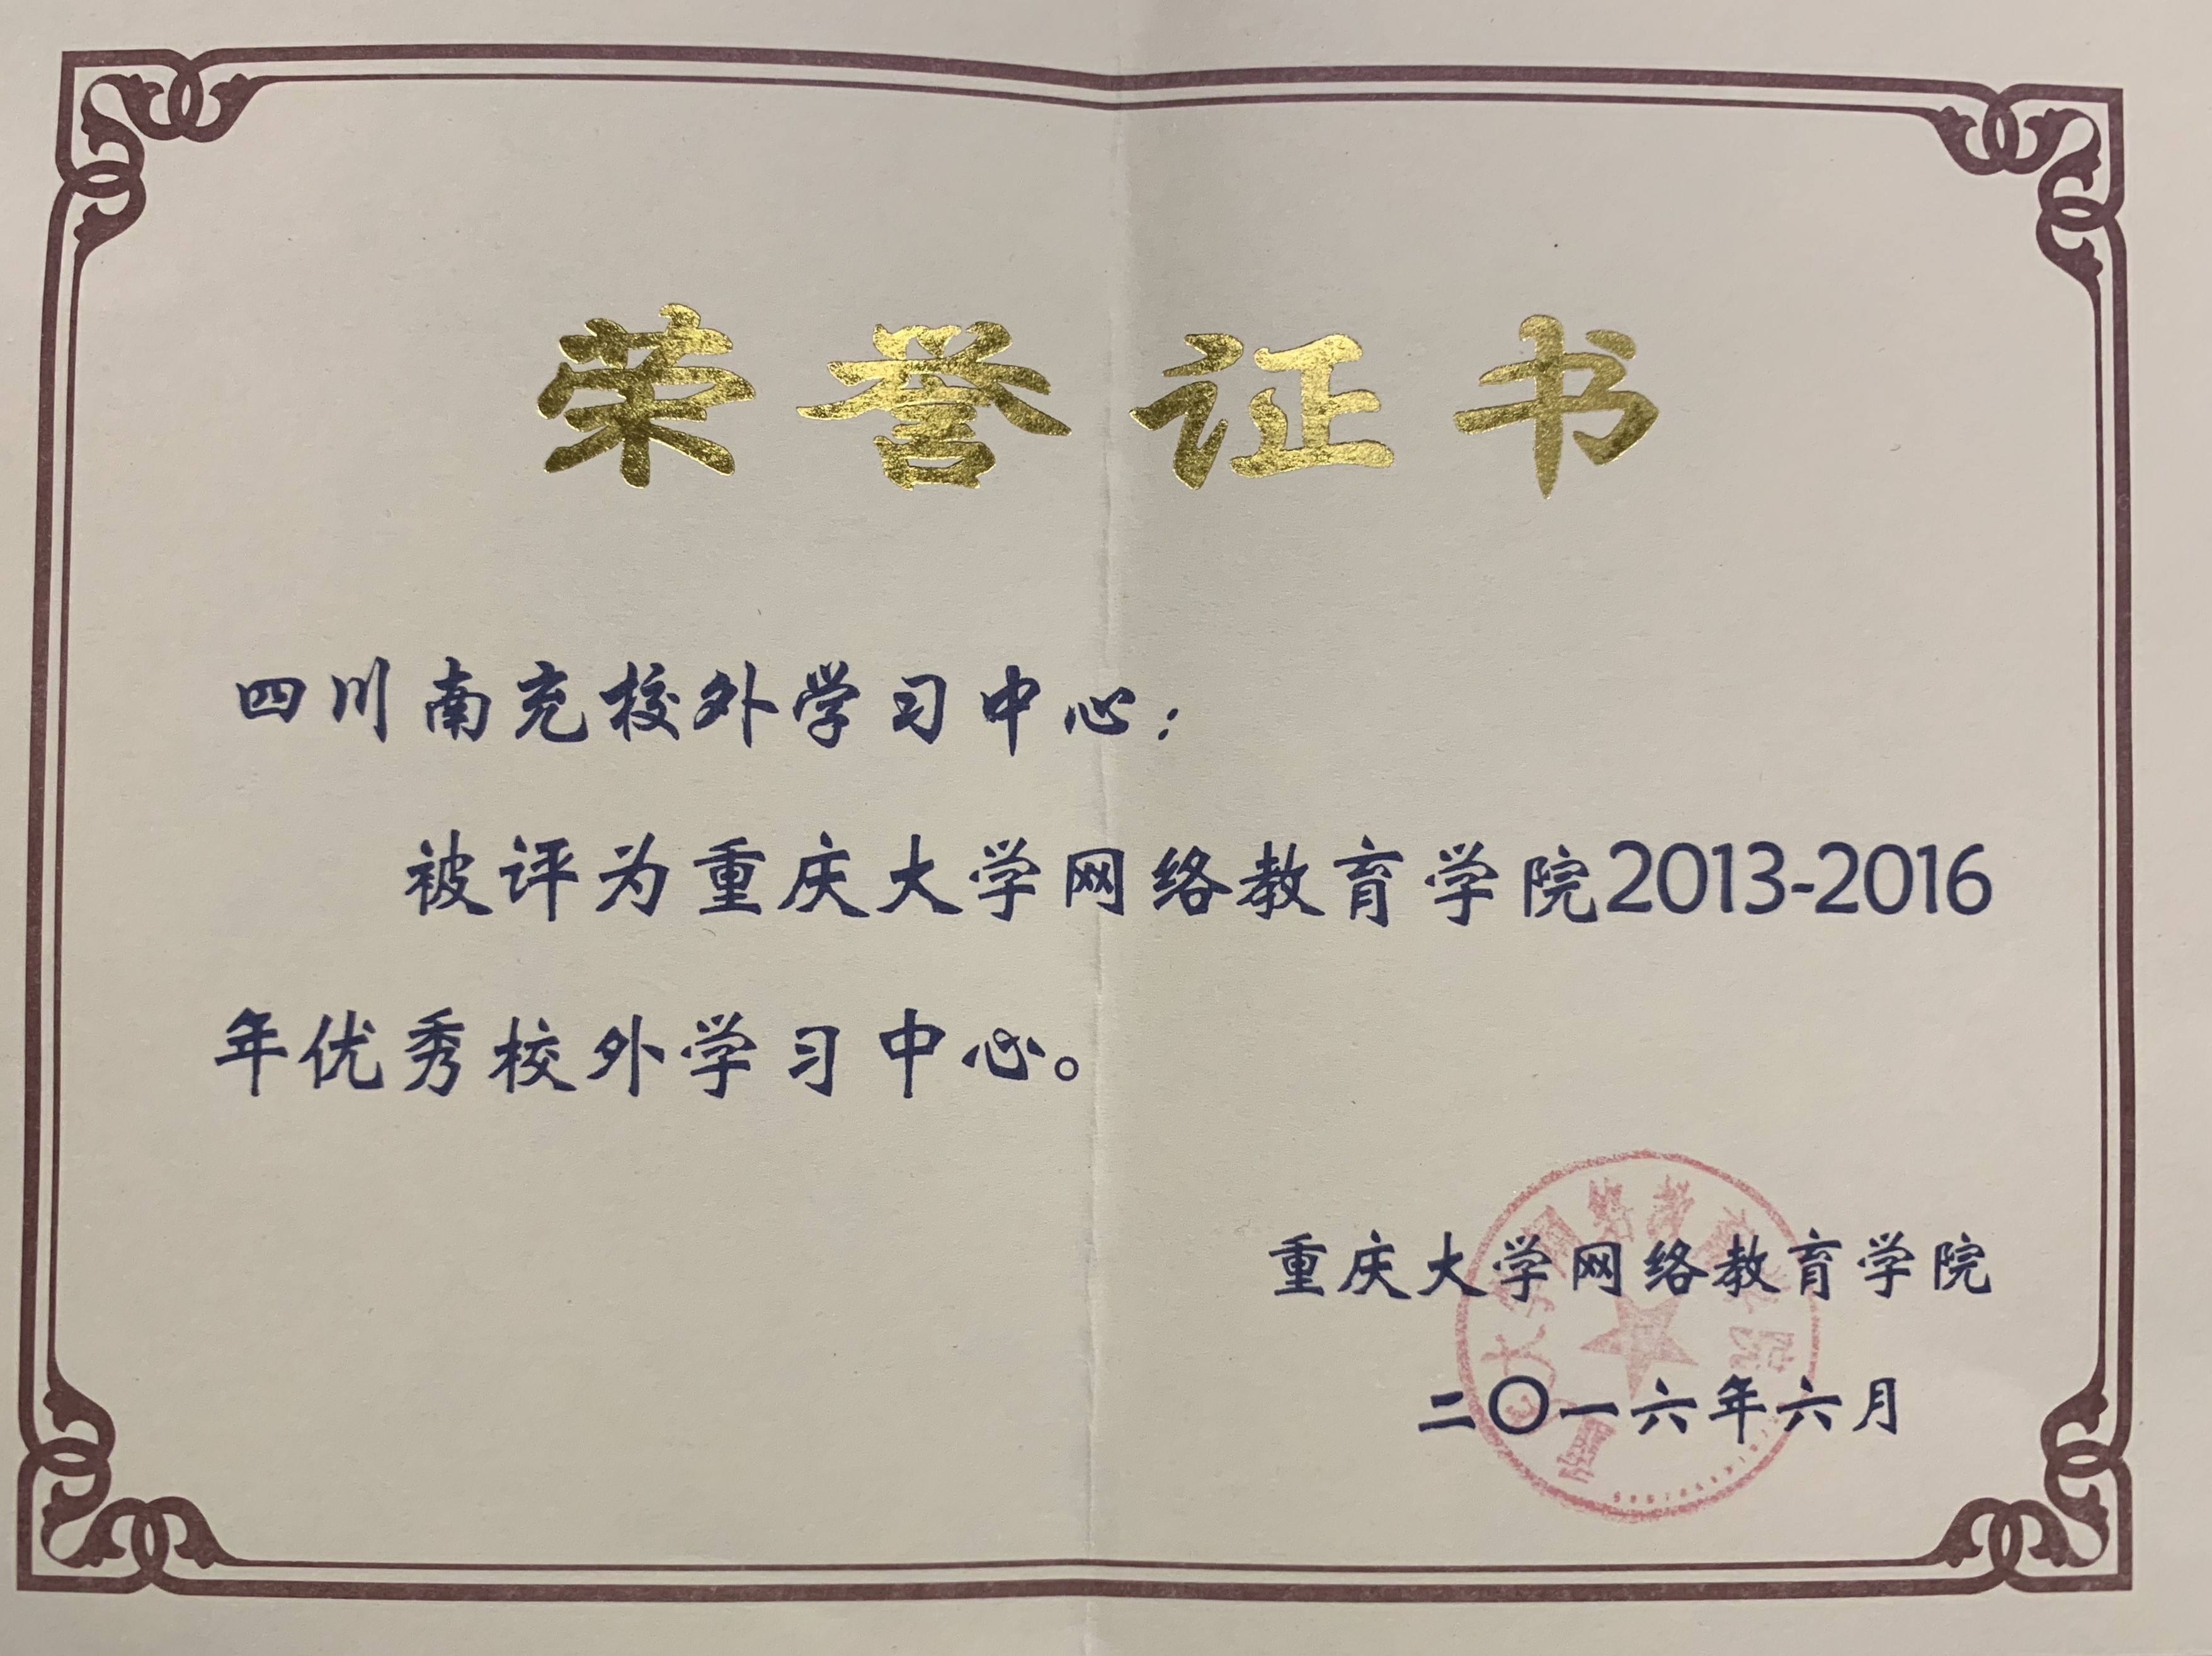 荣誉证书
四川南充校外学习中心：
被评为重庆大学网络教育学院2013-2016
年优秀校外学习中心。
重庆大学网络教育学院
二〇一六年六月